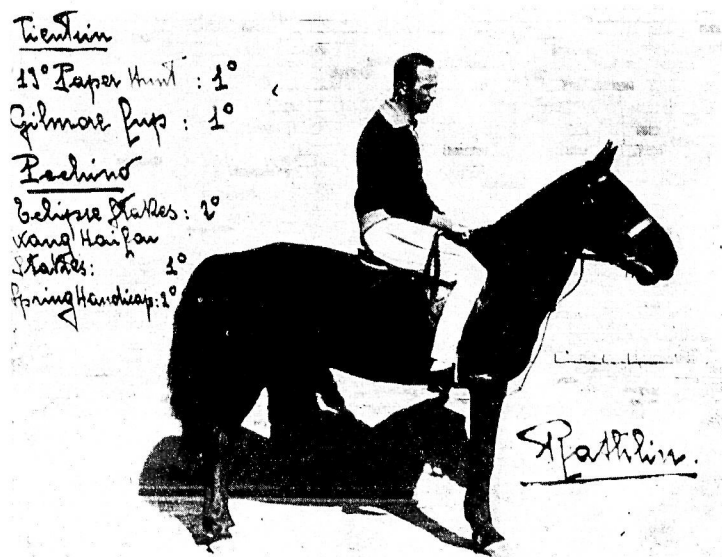 Tientsin
13° Paper Hunt : 1°
Gilmore Cup : 1°
Pechino
Eclipse Stakes : 2°
Stakes : 1°
Spring Handicap : 2°
Rathlin.